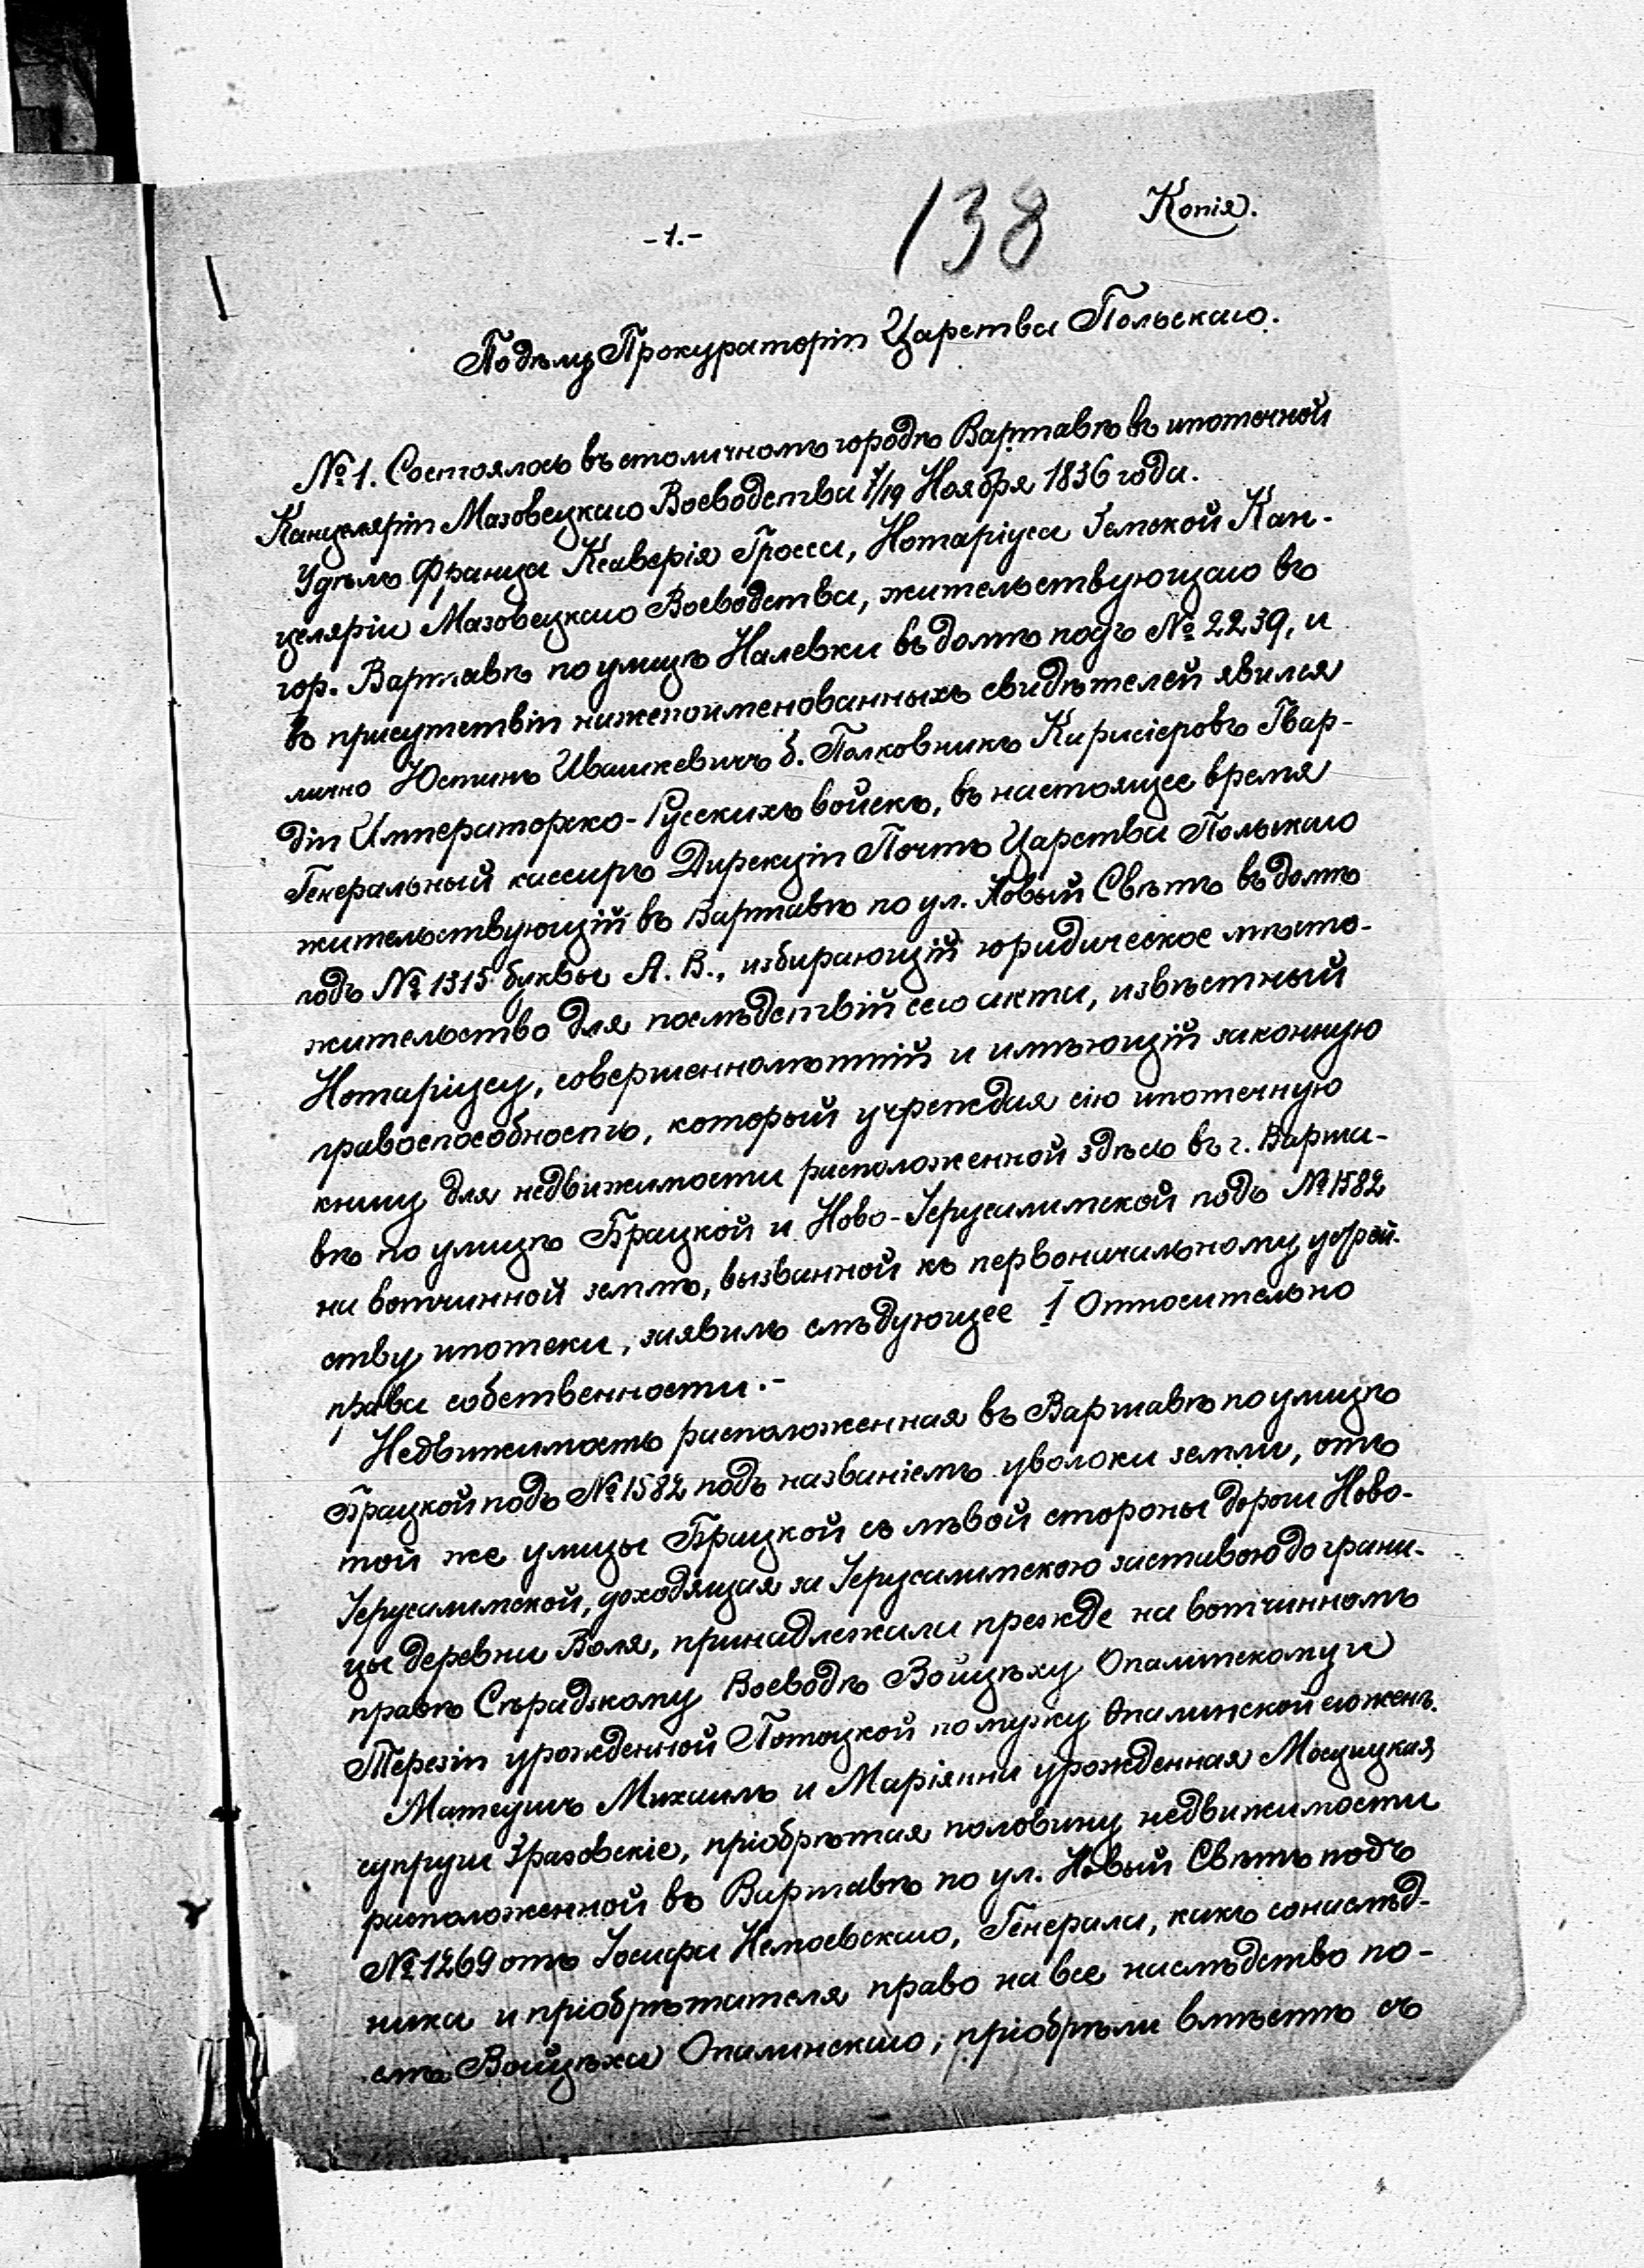 Копія.
138
-1.-
По дѣлу Прокураторіи Царства Польскаго.
№ 1. Состоялось въ столичномъ городѣ Варшавѣ въ ипотечной
Канцеляріи Мазовецкаго Воеводства 7/19 Ноября 1836 года.
У дѣлъ Франца Ксаверія Гросса, Нотаріуса Земской Кан-
целяріи Мазовецкаго Воеводства, жительствующаго въ
гор. Варшавѣ по улицѣ Налевки въ домѣ подъ № 2239, и
въ присутствіи нижепоименованныхъ свидѣтелей явился
лично Юстинъ Ивашкевичъ б. Полковникъ Кирисіеровъ Гвар-
діи Императорско-Русскихъ войскъ, въ настоящее время
Генеральный кассиръ Дирекціи Почтъ Царства Польскаго
жительствующій въ Варшавѣ по ул. Новый Свѣтъ въ домѣ
подъ № 1315 буквы А. В., избирающій юридическое мѣсто-
жительство для послѣдствій сего акта, извѣстный
Нотаріусу, совершеннолѣтній и имѣющій законную
правоспособность, который учреждая сію ипотечную
книгу для недвижимости расположенной здѣсь въ г. Варша-
вѣ по улицѣ Брацкой и Ново-Іерусалимской подъ № 1582
на вотчинной землѣ, вызванной къ первоначальному устрой-
ству ипотеки, заявилъ слѣдующее I Относительно
права собственности.-
Недвижимость расположенная въ Варшавѣ по улицѣ
Брацкой подъ № 1582 подъ названіемъ уволоки земли, отъ
той же улицы Брацкой съ лѣвой стороны дороги Ново-
Іерусалимской, доходящая за Іерусалимскою заставою до грани-
цы деревни Воля, принадлежали прежде на вотчинномъ
правѣ Сѣрадзкому Воеводѣ Войцѣху Опалинскому и
Терезіи урожденной Потоцкой по мужу Опалинской его женѣ.
Матеушъ Михаилъ и Маріянна урожденная Мосцицкая
супруги Зразовскіе, пріобрѣтая половину недвижимости
расположенной въ Варшавѣ по ул. Новый Свѣтъ подъ
№ 1269 отъ Іосифа Немоевскаго, Генерала, какъ сонаслѣд-
ника и пріобрѣтателя право на все наслѣдство по-
слѣ Войцѣха Опалинскаго, пріобрѣли вмѣстѣ съ